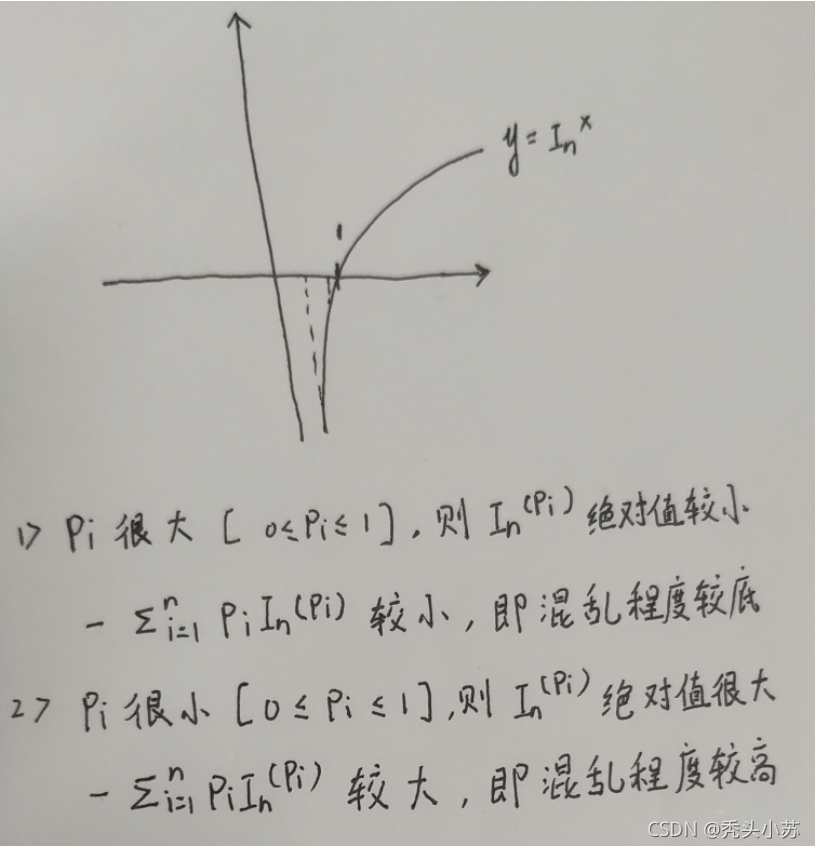 y = In^x
1
1> Pi 很大 [ 0≤Pi≤1 ], 则 In^(Pi) 绝对值较小
- Σ_{i=1}^{n} Pi In^(Pi) 较小, 即混乱程度较底
2> Pi 很小 [ 0 ≤ Pi ≤ 1 ], 则 In^(Pi) 绝对值很大
- Σ_{i=1}^{n} Pi In^(Pi) 较大, 即混乱程度较高
CSDN @秃头小苏